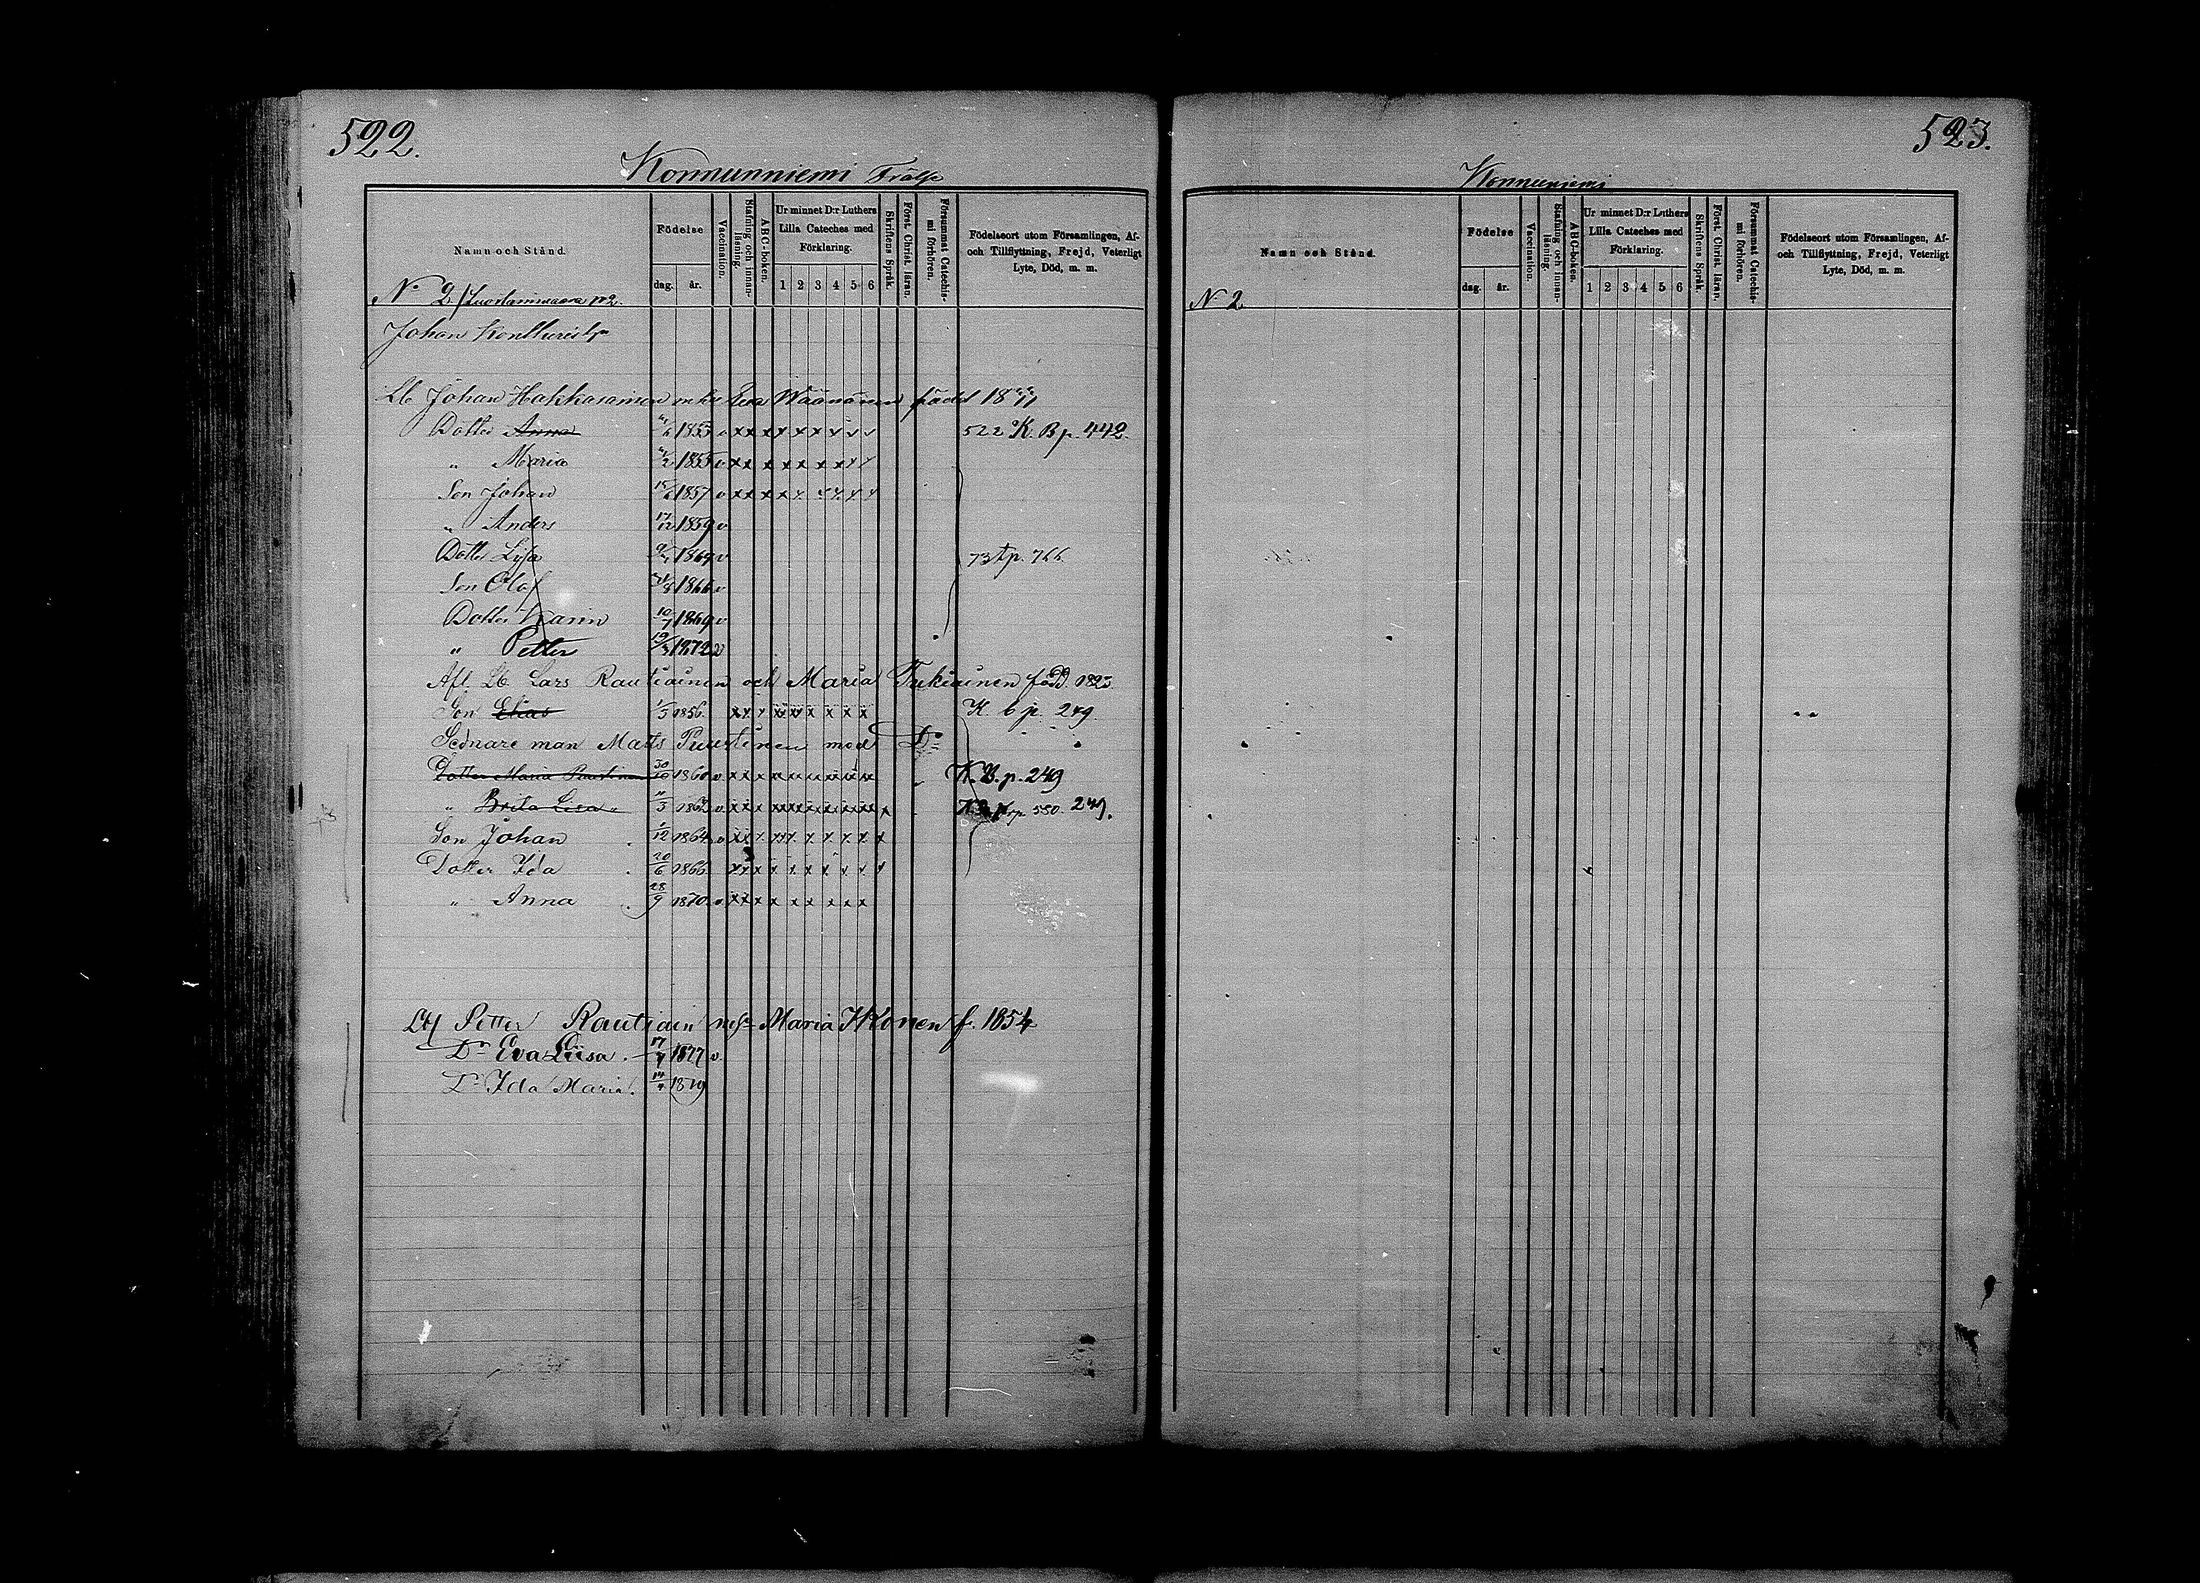 522.
Konnunniemi Frälse
Namn och Stånd.
Födelse
dag. år.
Vaccination.
Stafning och innanläsning.
ABC-boken.
Ur minnet D:r Luthers Lilla Cateches med Förklaring.
1 2 3 4 5 6
Skriftens Språk.
Först. Christ. läran.
Försummat Catechismi förhören.
Födelseort utom Församlingen, Af- och Tillflyttning, Frejd, Veterligt Lyte, Död, m. m.
No 2
Johan
Lb Johan Hakkarainen Eva Wäänänen född 18
Dotter Anna 1853 v x x x x x x x x x K. B p. 442.
" Maria 1855 v x x x x x x x x x
Son Johan 1857 v x x x x x x x x x
" Anders 17/12 1859 v
Dotter Lisa v 73 p. 766.
Son Olof 1866 v
Dotter Karin 10/7 1869 v
" Petter 1872 v
Afl. Lb Lars Rautiainen och Maria Tukiainen född. 1823
Son Elias 1/5 1856. x x x x x x x x x K. b p. 249.
Sednare man Matts Puustinen med Do
Dotter Maria Puustinen 30/10 1860 v x x x x x x x x x K. B. p. 249
" Brita Lisa " 1862 v x x x x x x x x x x 550. 249.
Son Johan 1/12 1864 v x x x x x x x x x x
Dotter Ida 20/6 1866. x x x x x x x x x x
" Anna 28/9 1870. v x x x x x x x x x
Petter Rautiain Maria Ikonen f. 1854
Dr Eva Liisa. 1877 v
Dr Ida Maria. 1879
523.
Konnuniemi
Namn och Stånd.
Födelse
dag. år.
Vaccination.
Stafning och innanläsning.
ABC-boken.
Ur minnet D:r Luthers Lilla Cateches med Förklaring.
1 2 3 4 5 6
Skriftens Språk.
Först. Christ. läran.
Försummat Catechismi förhören.
Födelseort utom Församlingen, Af- och Tillflyttning, Frejd, Veterligt Lyte, Död, m. m.
N 2